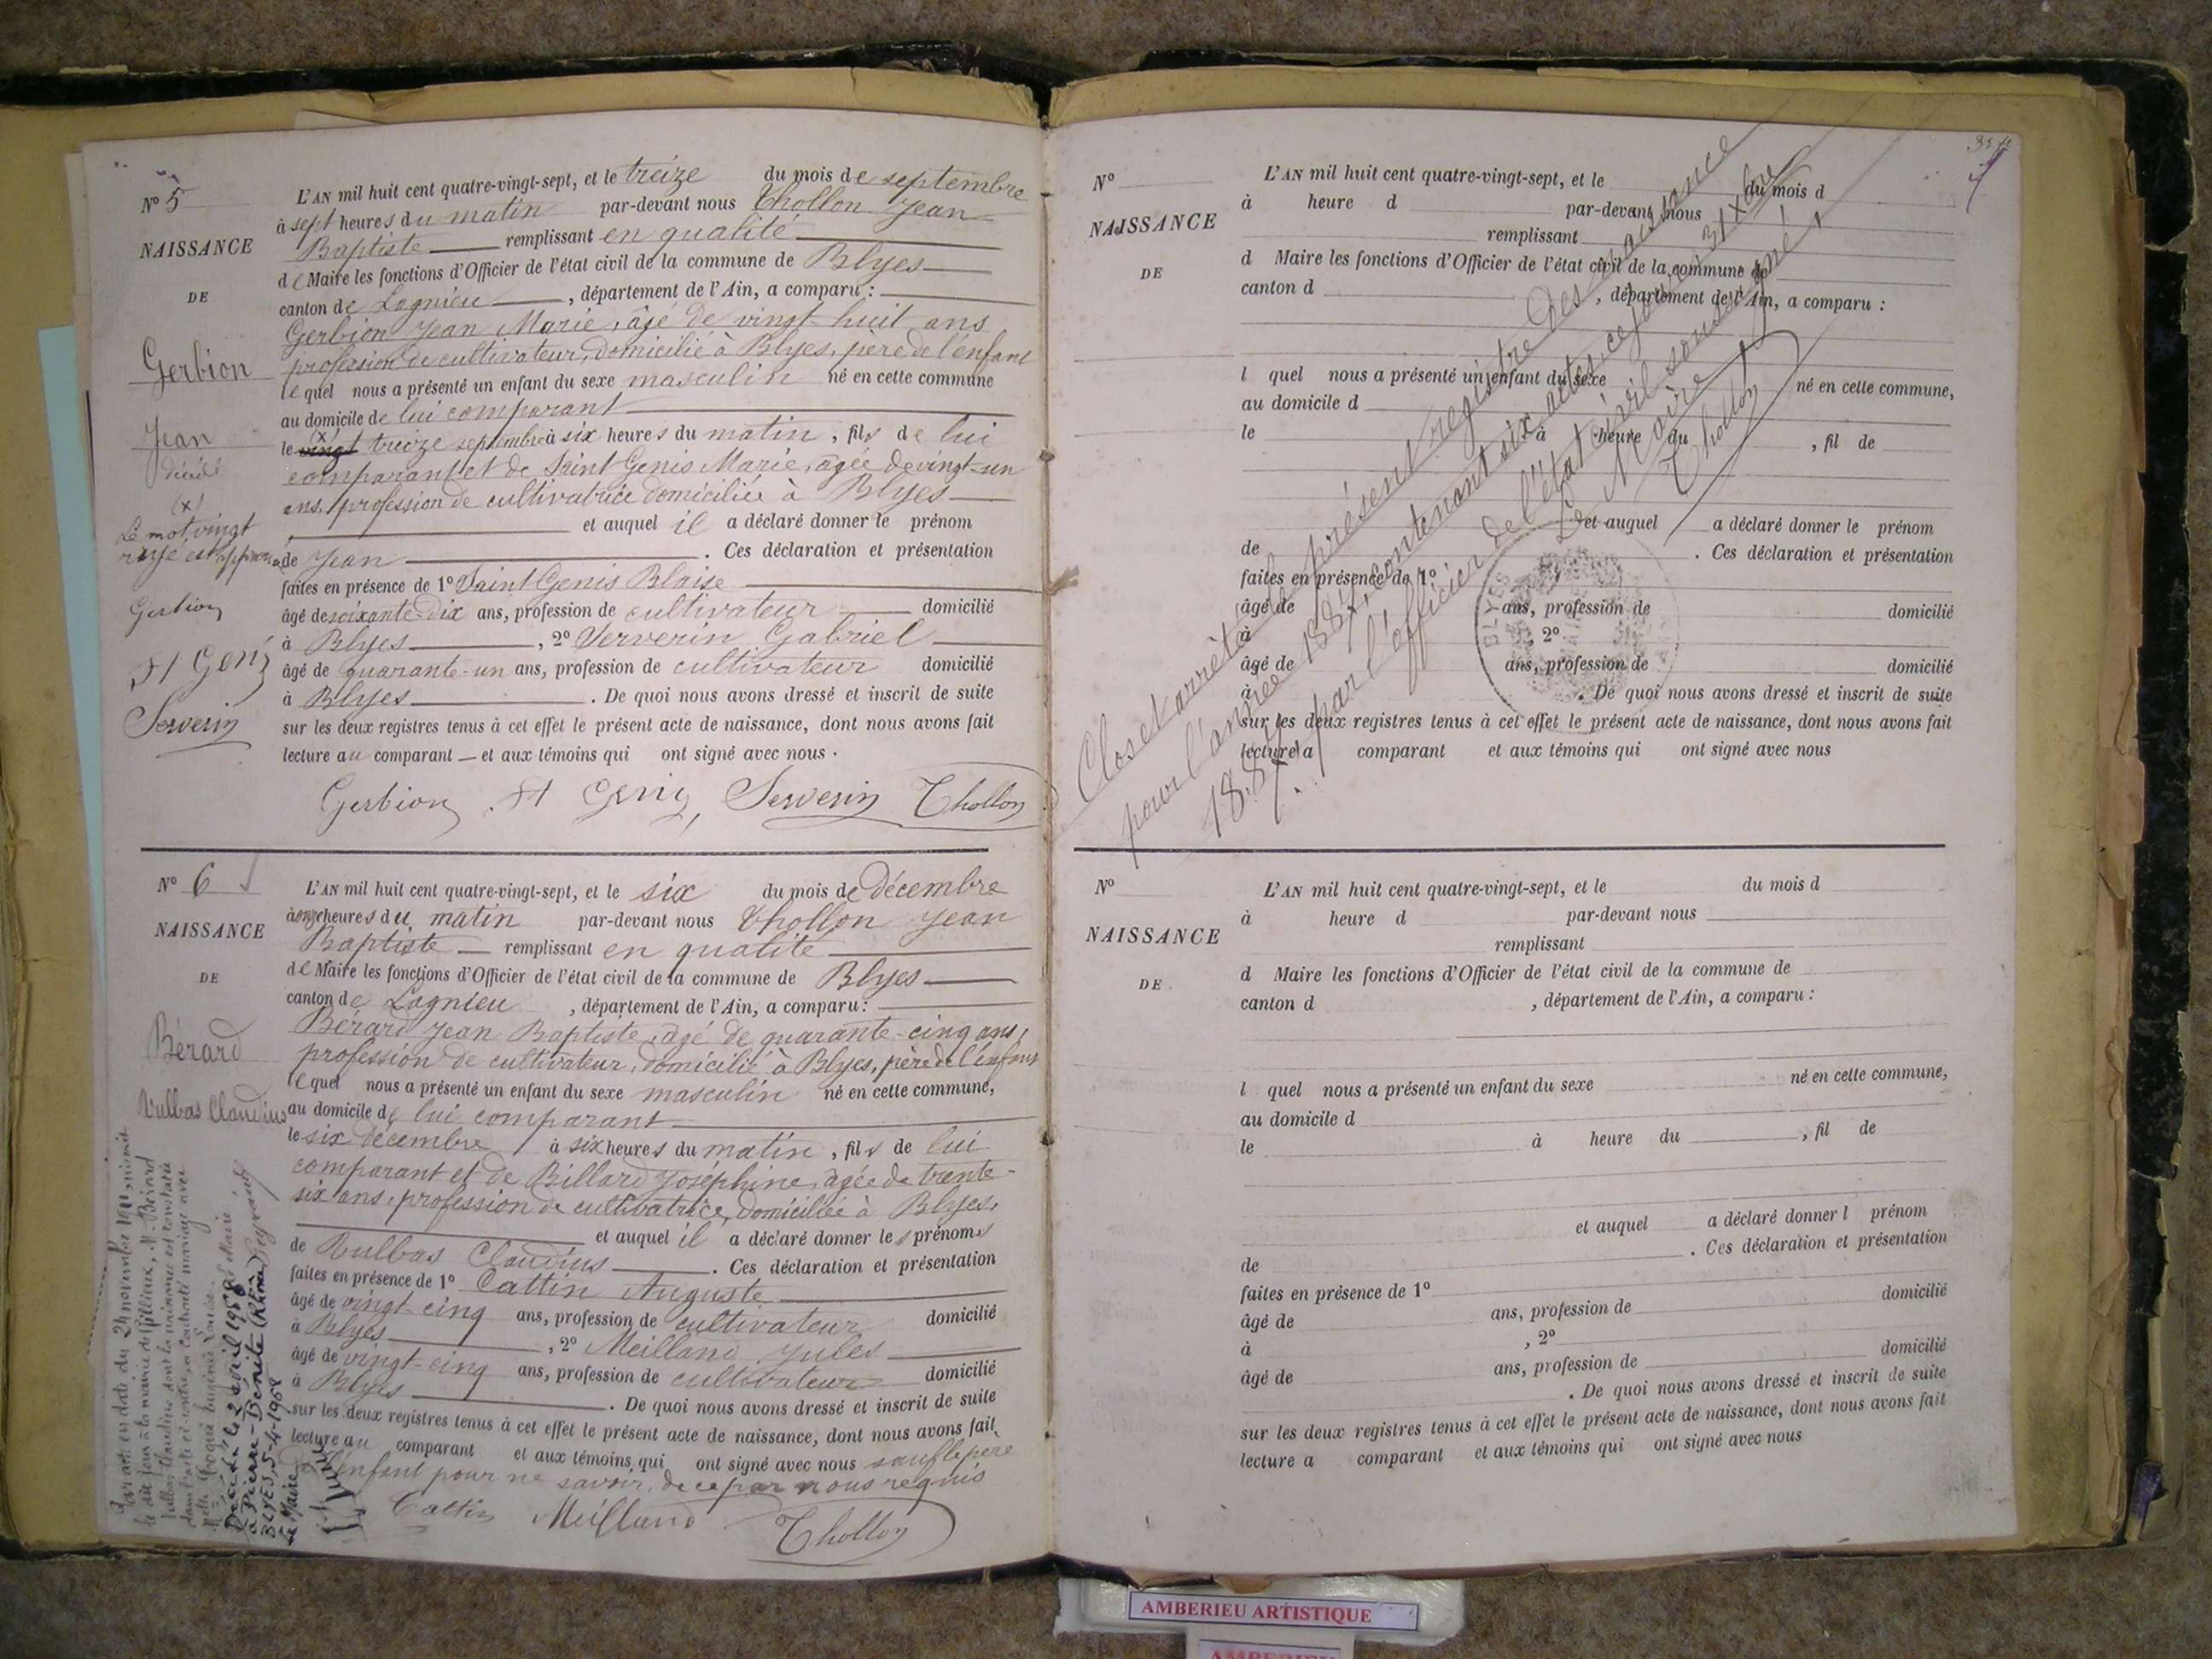 N° 5
NAISSANCE
DE
Gerbion
Jean
décédé
(x)
Le mot vingt
rayé est approuvé
Gerbion
St Genis
Serverin
L'AN mil huit cent quatre-vingt-sept, et le treize du mois de septembre
à sept heures du matin par-devant nous Thollon Jean
Baptiste remplissant en qualité
de Maire les fonctions d'Officier de l'état civil de la commune de Blyes
canton de Lagnieu, département de l'Ain, a comparu :
Gerbion Jean Marie, âgé de vingt-huit ans
profession de cultivateur, domicilié à Blyes, père de l'enfant
lequel nous a présenté un enfant du sexe masculin né en cette commune
au domicile de lui comparant
le vingt (x) treize septembre à six heures du matin, fils de lui
comparant et de Saint Genis Marie, âgée de vingt-un
ans, profession de cultivatrice domiciliée à Blyes
et auquel il a déclaré donner le prénom
de Jean. Ces déclaration et présentation
faites en présence de 1° Saint Genis Blaise
âgé de soixante-dix ans, profession de cultivateur domicilié
à Blyes, 2° Serverin Gabriel
âgé de quarante-un ans, profession de cultivateur domicilié
à Blyes. De quoi nous avons dressé et inscrit de suite
sur les deux registres tenus à cet effet le présent acte de naissance, dont nous avons fait
lecture au comparant — et aux témoins qui ont signé avec nous.
Gerbion St Genis, Serverin Thollon
N° 6
NAISSANCE
DE
Bérard
Vulbas Claudius
L'AN mil huit cent quatre-vingt-sept, et le six du mois de décembre
à onze heures du matin par-devant nous Thollon Jean
Baptiste — remplissant en qualité
de Maire les fonctions d'Officier de l'état civil de la commune de Blyes
canton de Lagnieu, département de l'Ain, a comparu :
Bérard Jean Baptiste, âgé de quarante-cinq ans,
profession de cultivateur, domicilié à Blyes, père de l'enfant
lequel nous a présenté un enfant du sexe masculin né en cette commune,
au domicile de lui comparant
le six décembre à six heures du matin, fils de lui
comparant et de Billard Joséphine, âgée de trente-
six ans, profession de cultivatrice, domiciliée à Blyes,
et auquel il a déclaré donner les prénoms
de Vulbas Claudius. Ces déclaration et présentation
faites en présence de 1° Cattin Auguste
âgé de vingt-cinq ans, profession de cultivateur domicilié
à Blyes, 2° Meilland Jules
âgé de vingt-cinq ans, profession de cultivateur domicilié
à Blyes. De quoi nous avons dressé et inscrit de suite
sur les deux registres tenus à cet effet le présent acte de naissance, dont nous avons fait
lecture au comparant et aux témoins qui ont signé avec nous sauf le père
de l'enfant pour ne savoir, de ce par nous requis
Cattin Meilland Thollon
Par acte en date du 24 novembre
Décédé le 2 avril 1968
à Pierre-Bénite (Rhône)
BLYES, 5-4-1968
Le Maire
N°
NAISSANCE
DE
L'AN mil huit cent quatre-vingt-sept, et le du mois d
à heure d par-devant nous
remplissant
d Maire les fonctions d'Officier de l'état civil de la commune de
canton d , département de l'Ain, a comparu :
l quel nous a présenté un enfant du sexe né en cette commune,
au domicile d
le à heure du , fil de
et auquel a déclaré donner le prénom
de . Ces déclaration et présentation
faites en présence de 1°
âgé de ans, profession de domicilié
à , 2°
âgé de ans, profession de domicilié
à . De quoi nous avons dressé et inscrit de suite
sur les deux registres tenus à cet effet le présent acte de naissance, dont nous avons fait
lecture a comparant et aux témoins qui ont signé avec nous
Clos et arrêté le présent registre des naissance
pour l'année 1887, contenant six actes, ce jour 31 Xbre
1887, par l'officier de l'état civil soussigné
Le Maire
Thollon
BLYES
N°
NAISSANCE
DE
L'AN mil huit cent quatre-vingt-sept, et le du mois d
à heure d par-devant nous
remplissant
d Maire les fonctions d'Officier de l'état civil de la commune de
canton d , département de l'Ain, a comparu :
l quel nous a présenté un enfant du sexe né en cette commune,
au domicile d
le à heure du , fil de
et auquel a déclaré donner l prénom
de . Ces déclaration et présentation
faites en présence de 1°
âgé de ans, profession de domicilié
à , 2°
âgé de ans, profession de domicilié
. De quoi nous avons dressé et inscrit de suite
sur les deux registres tenus à cet effet le présent acte de naissance, dont nous avons fait
lecture a comparant et aux témoins qui ont signé avec nous
AMBERIEU ARTISTIQUE
AMBERIEU